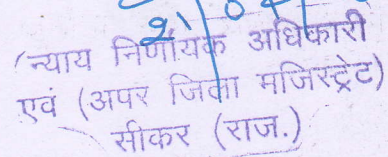 (न्याय निर्णायक अधिकारी
एवं (अपर जिला मजिस्ट्रेट)
सीकर (राज.)